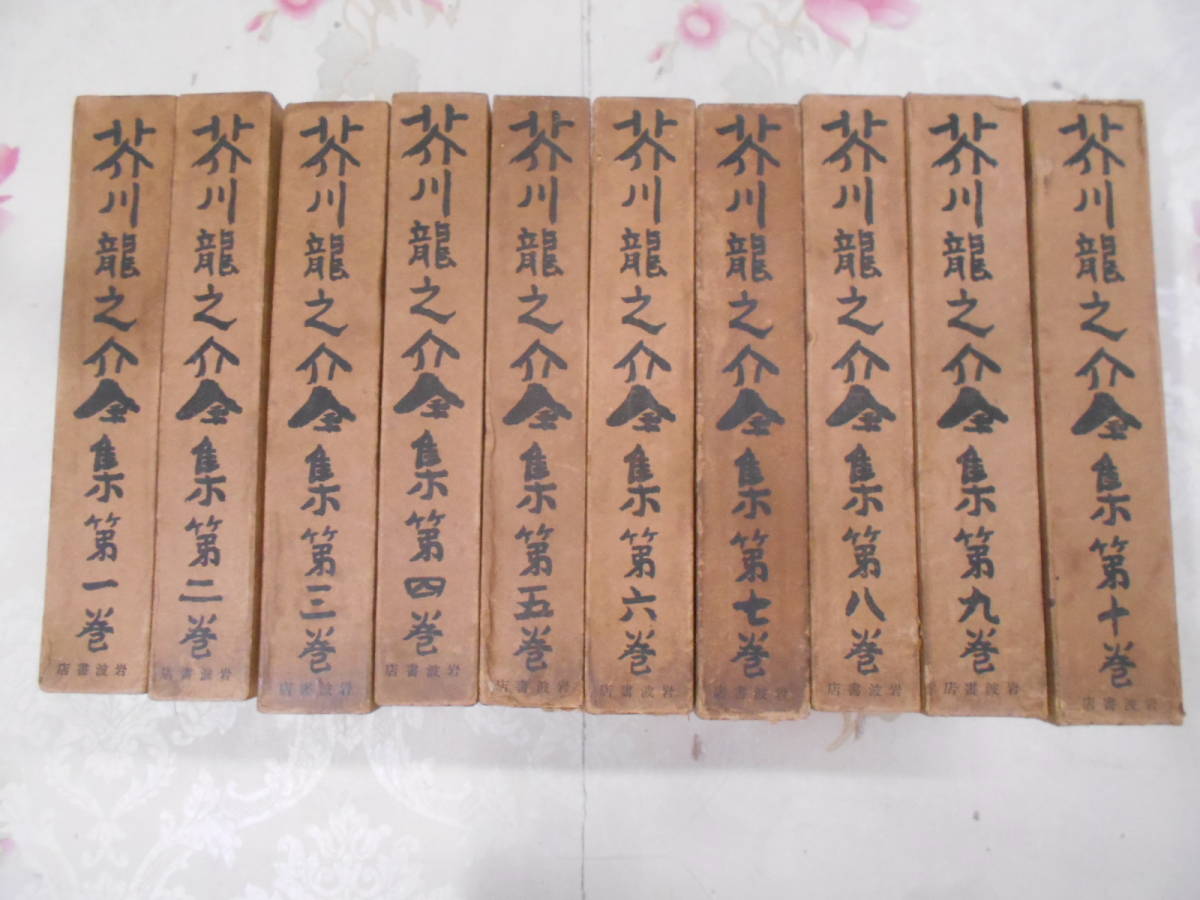 芥川龍之介全集第一巻
岩波書店
芥川龍之介全集第二巻
岩波書店
芥川龍之介全集第三巻
岩波書店
芥川龍之介全集第四巻
岩波書店
芥川龍之介全集第五巻
岩波書店
芥川龍之介全集第六巻
岩波書店
芥川龍之介全集第七巻
岩波書店
芥川龍之介全集第八巻
岩波書店
芥川龍之介全集第九巻
岩波書店
芥川龍之介全集第十巻
岩波書店